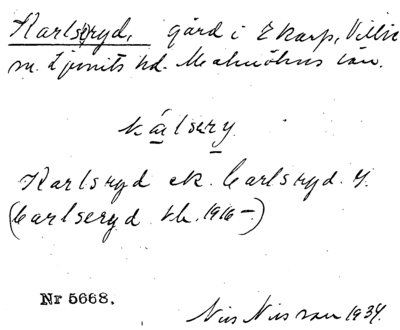 Karlsryd, gård i Ekarp, Villie
sn. Ljunits hd. Malmöhus län.
kálsery
Karlsryd ek. Carlsryd. J.
(Carlseryd tb. 1916–)
Nr 5668.
Nils Nilsson 1934.